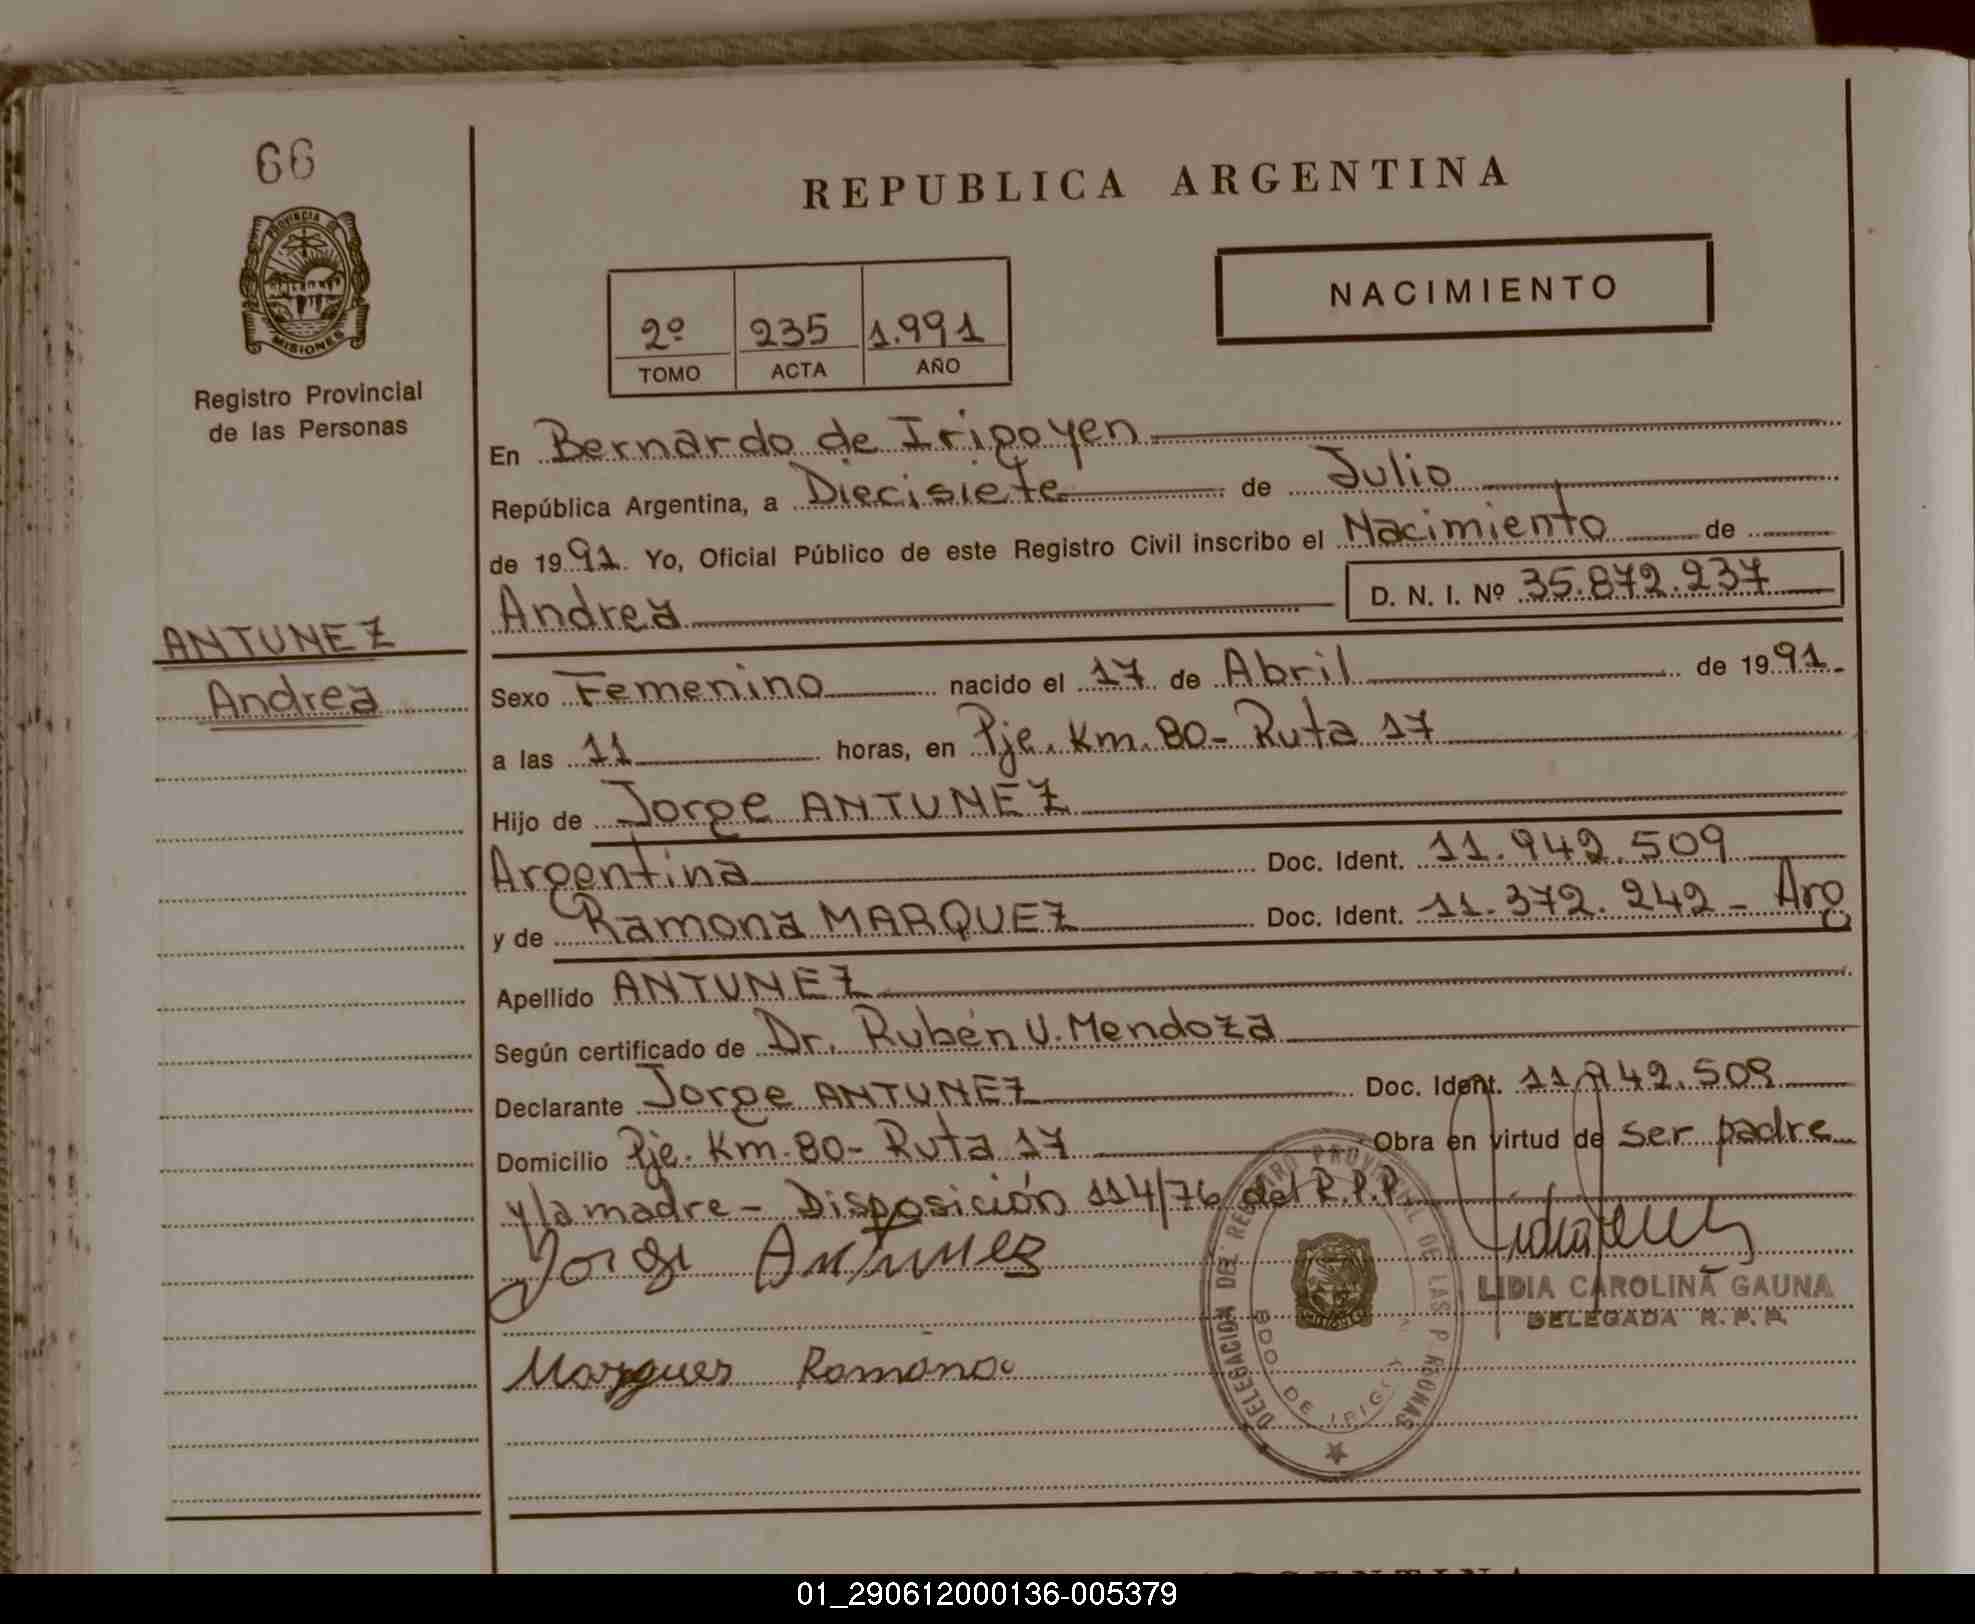 66
REPUBLICA ARGENTINA
PROVINCIA DE
MISIONES
Registro Provincial
de las Personas
2º 235 1.991
TOMO ACTA AÑO
NACIMIENTO
En Bernardo de Irigoyen
República Argentina, a Diecisiete de Julio
de 1991. Yo, Oficial Público de este Registro Civil inscribo el Nacimiento de
Andrea D. N. I. Nº 35.872.237
ANTUNEZ
Andrea
Sexo Femenino nacido el 17 de Abril de 1991
a las 11 horas, en Pje. Km. 80- Ruta 17
Hijo de Jorge ANTUNEZ
Argentina Doc. Ident. 11.942.509
y de Ramona MARQUEZ Doc. Ident. 11.372.242 - Arg
Apellido ANTUNEZ
Según certificado de Dr. Rubén U. Mendoza
Declarante Jorge ANTUNEZ Doc. Ident. 11.942.509
Domicilio Pje. Km. 80- Ruta 17 Obra en virtud de ser padre
y/la madre - Disposición 114/76 del R.P.P.
Jorge Antunez
LIDIA CAROLINA GAUNA
DELEGADA R. P. P.
Marques Ramona
DELEGACION DEL REGISTRO PROVINCIAL DE LAS PERSONAS
BDO DE IRIGOYEN
01_290612000136-005379